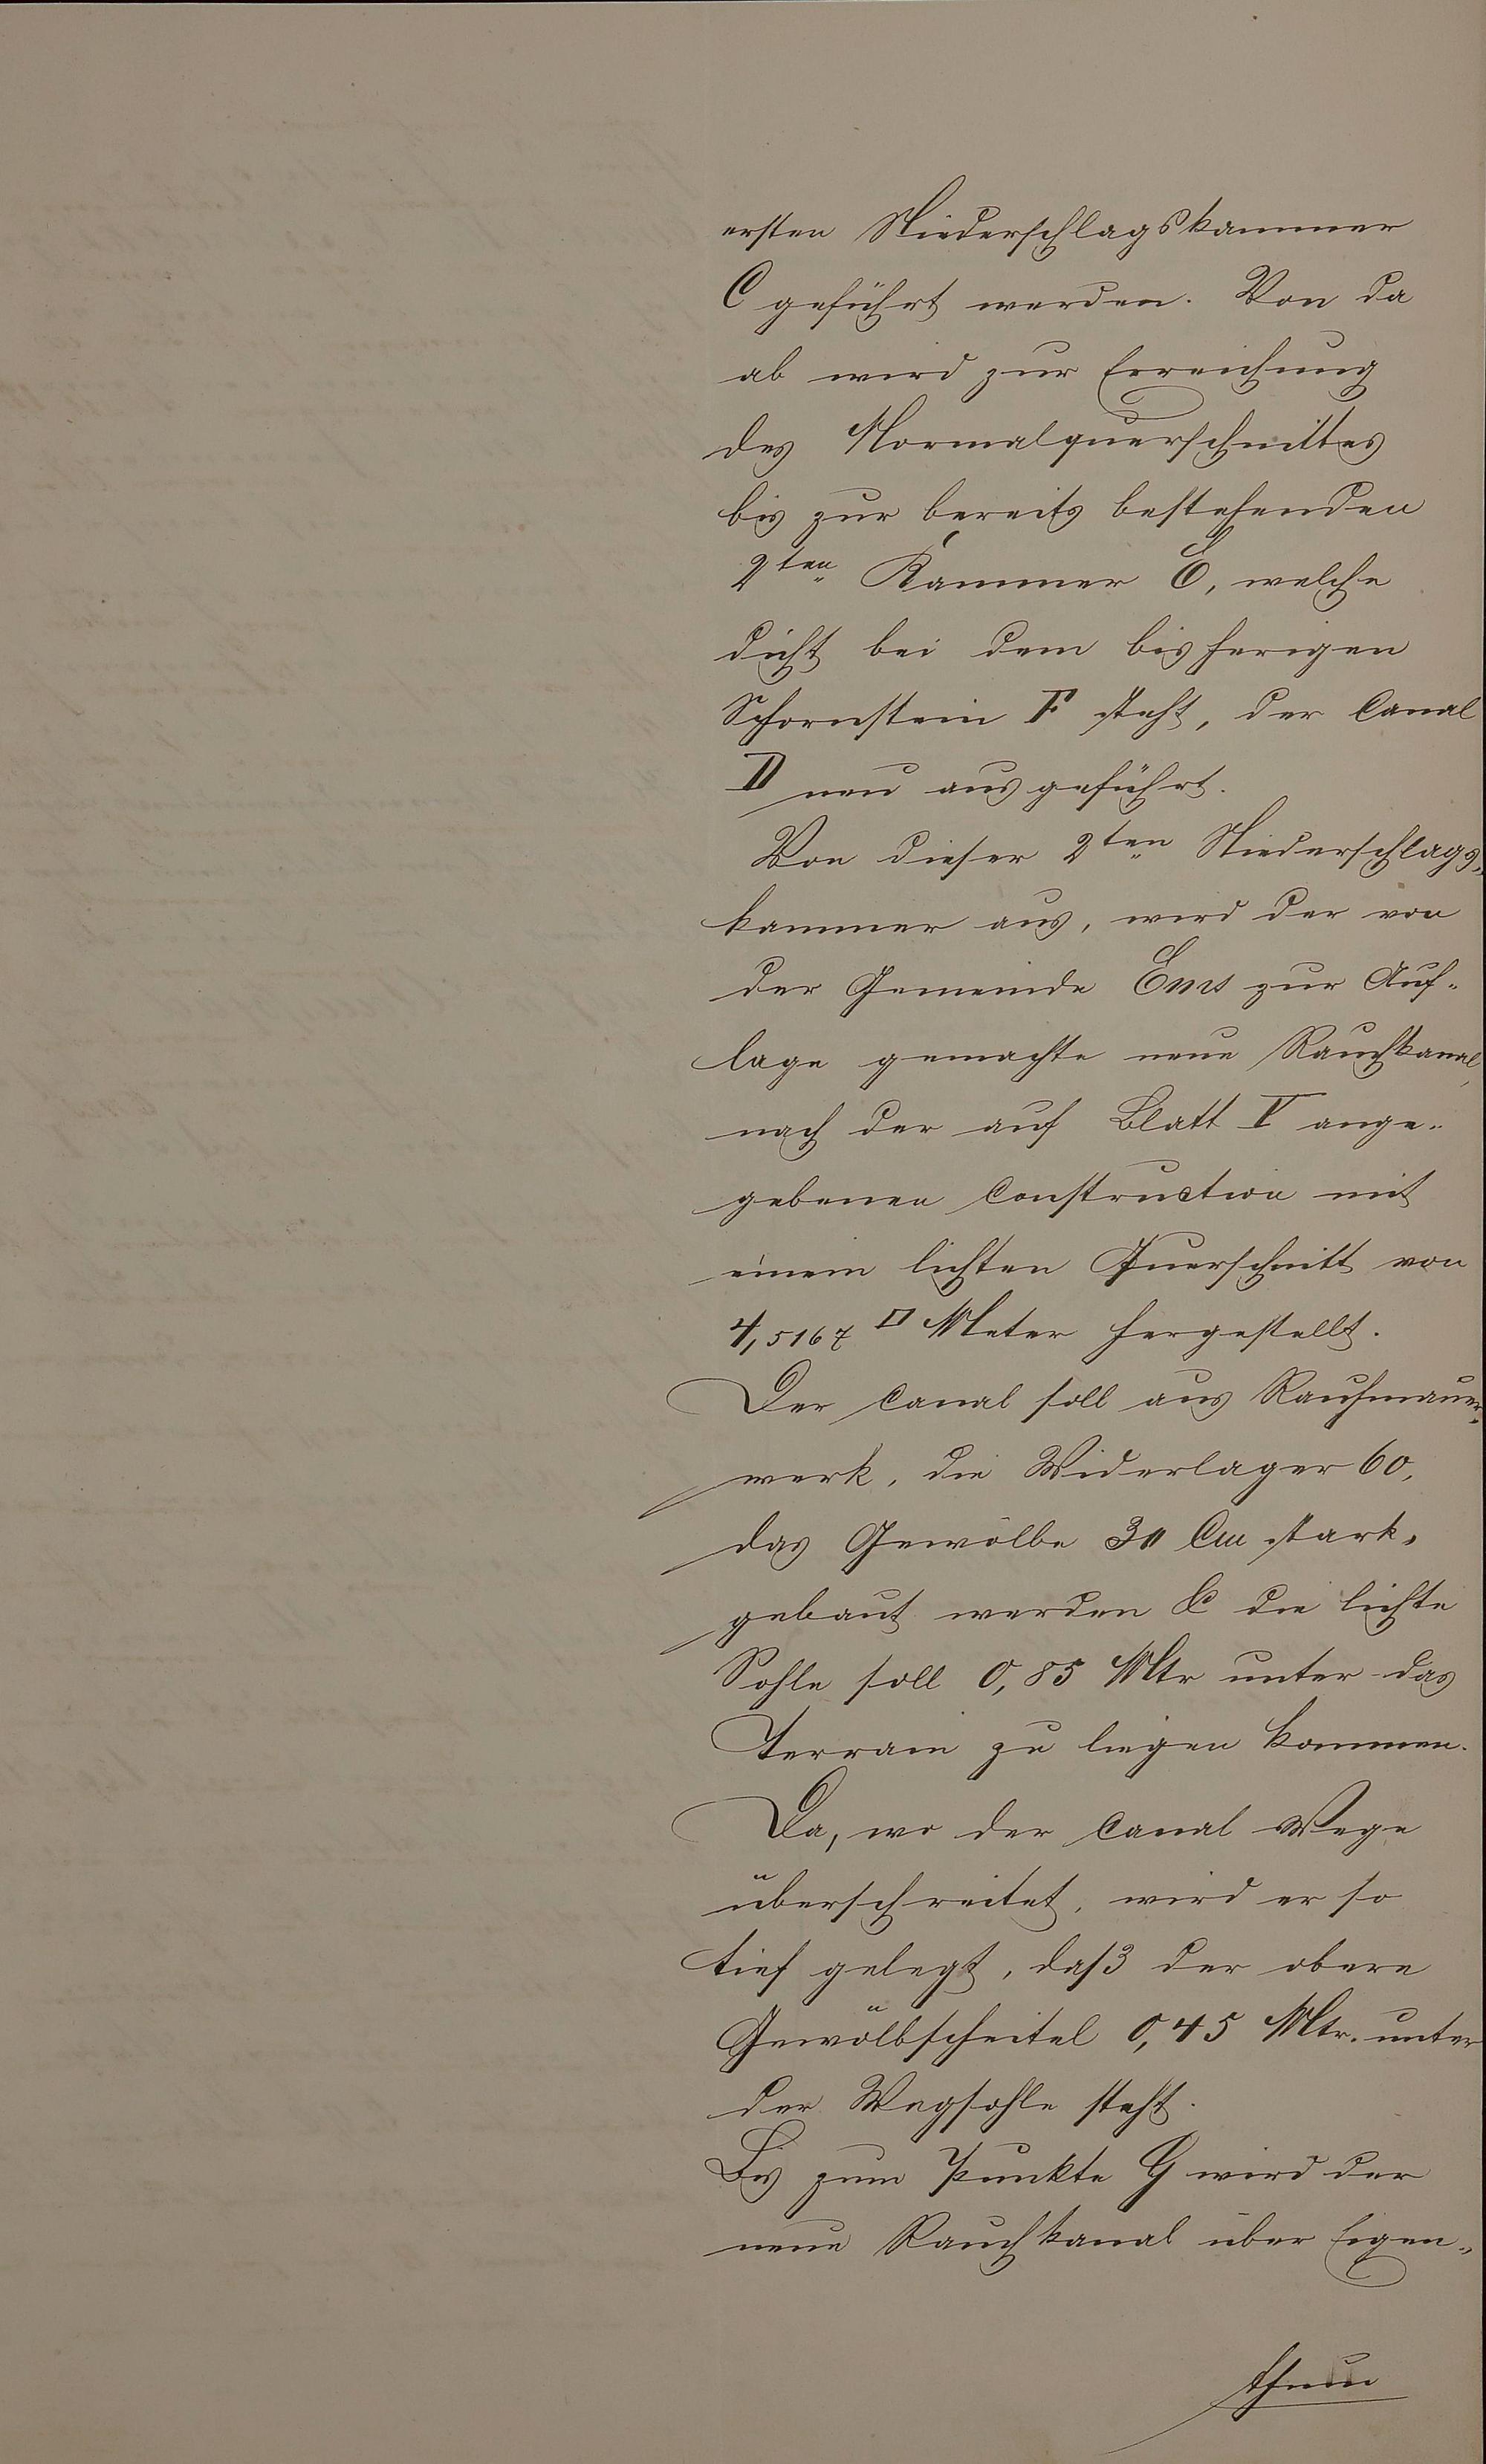 ersten Niederschlagskammer
C geführt werden. Von da
ab wird zur Erreichung
des Normalquerschnittes
bis zur bereits bestehenden
2ten Kammer E, welche
dicht bei dem bisherigen
Schornstein F steht, der Canal
D neu ausgeführt.
Von dieser 2ten Niederschlags-
kammer aus, wird der von
der Gemeinde Ems zur Auf-
lage gemachte neue Rauchkanal,
nach der auf Blatt V ange-
gebenen Construction mit
einem lichten Querschnitt von
4,5167 □ Meter hergestellt.
Der Canal soll aus Rauhmauer-
werk, die Widerlager 60,
das Gewölbe 30 Cm stark,
gebaut werden & die lichte
Sohle soll 0,85 Mtr unter das
Terrain zu liegen kommen.
Da, wo der Canal Wege
überschreitet, wird er so
tief gelegt, daß der obere
Gewölbscheitel 0,45 Mtr. unter
der Wegsohle steht.
Bis zum Punkte G wird der
neue Rauchkanal über Eigen-
thum